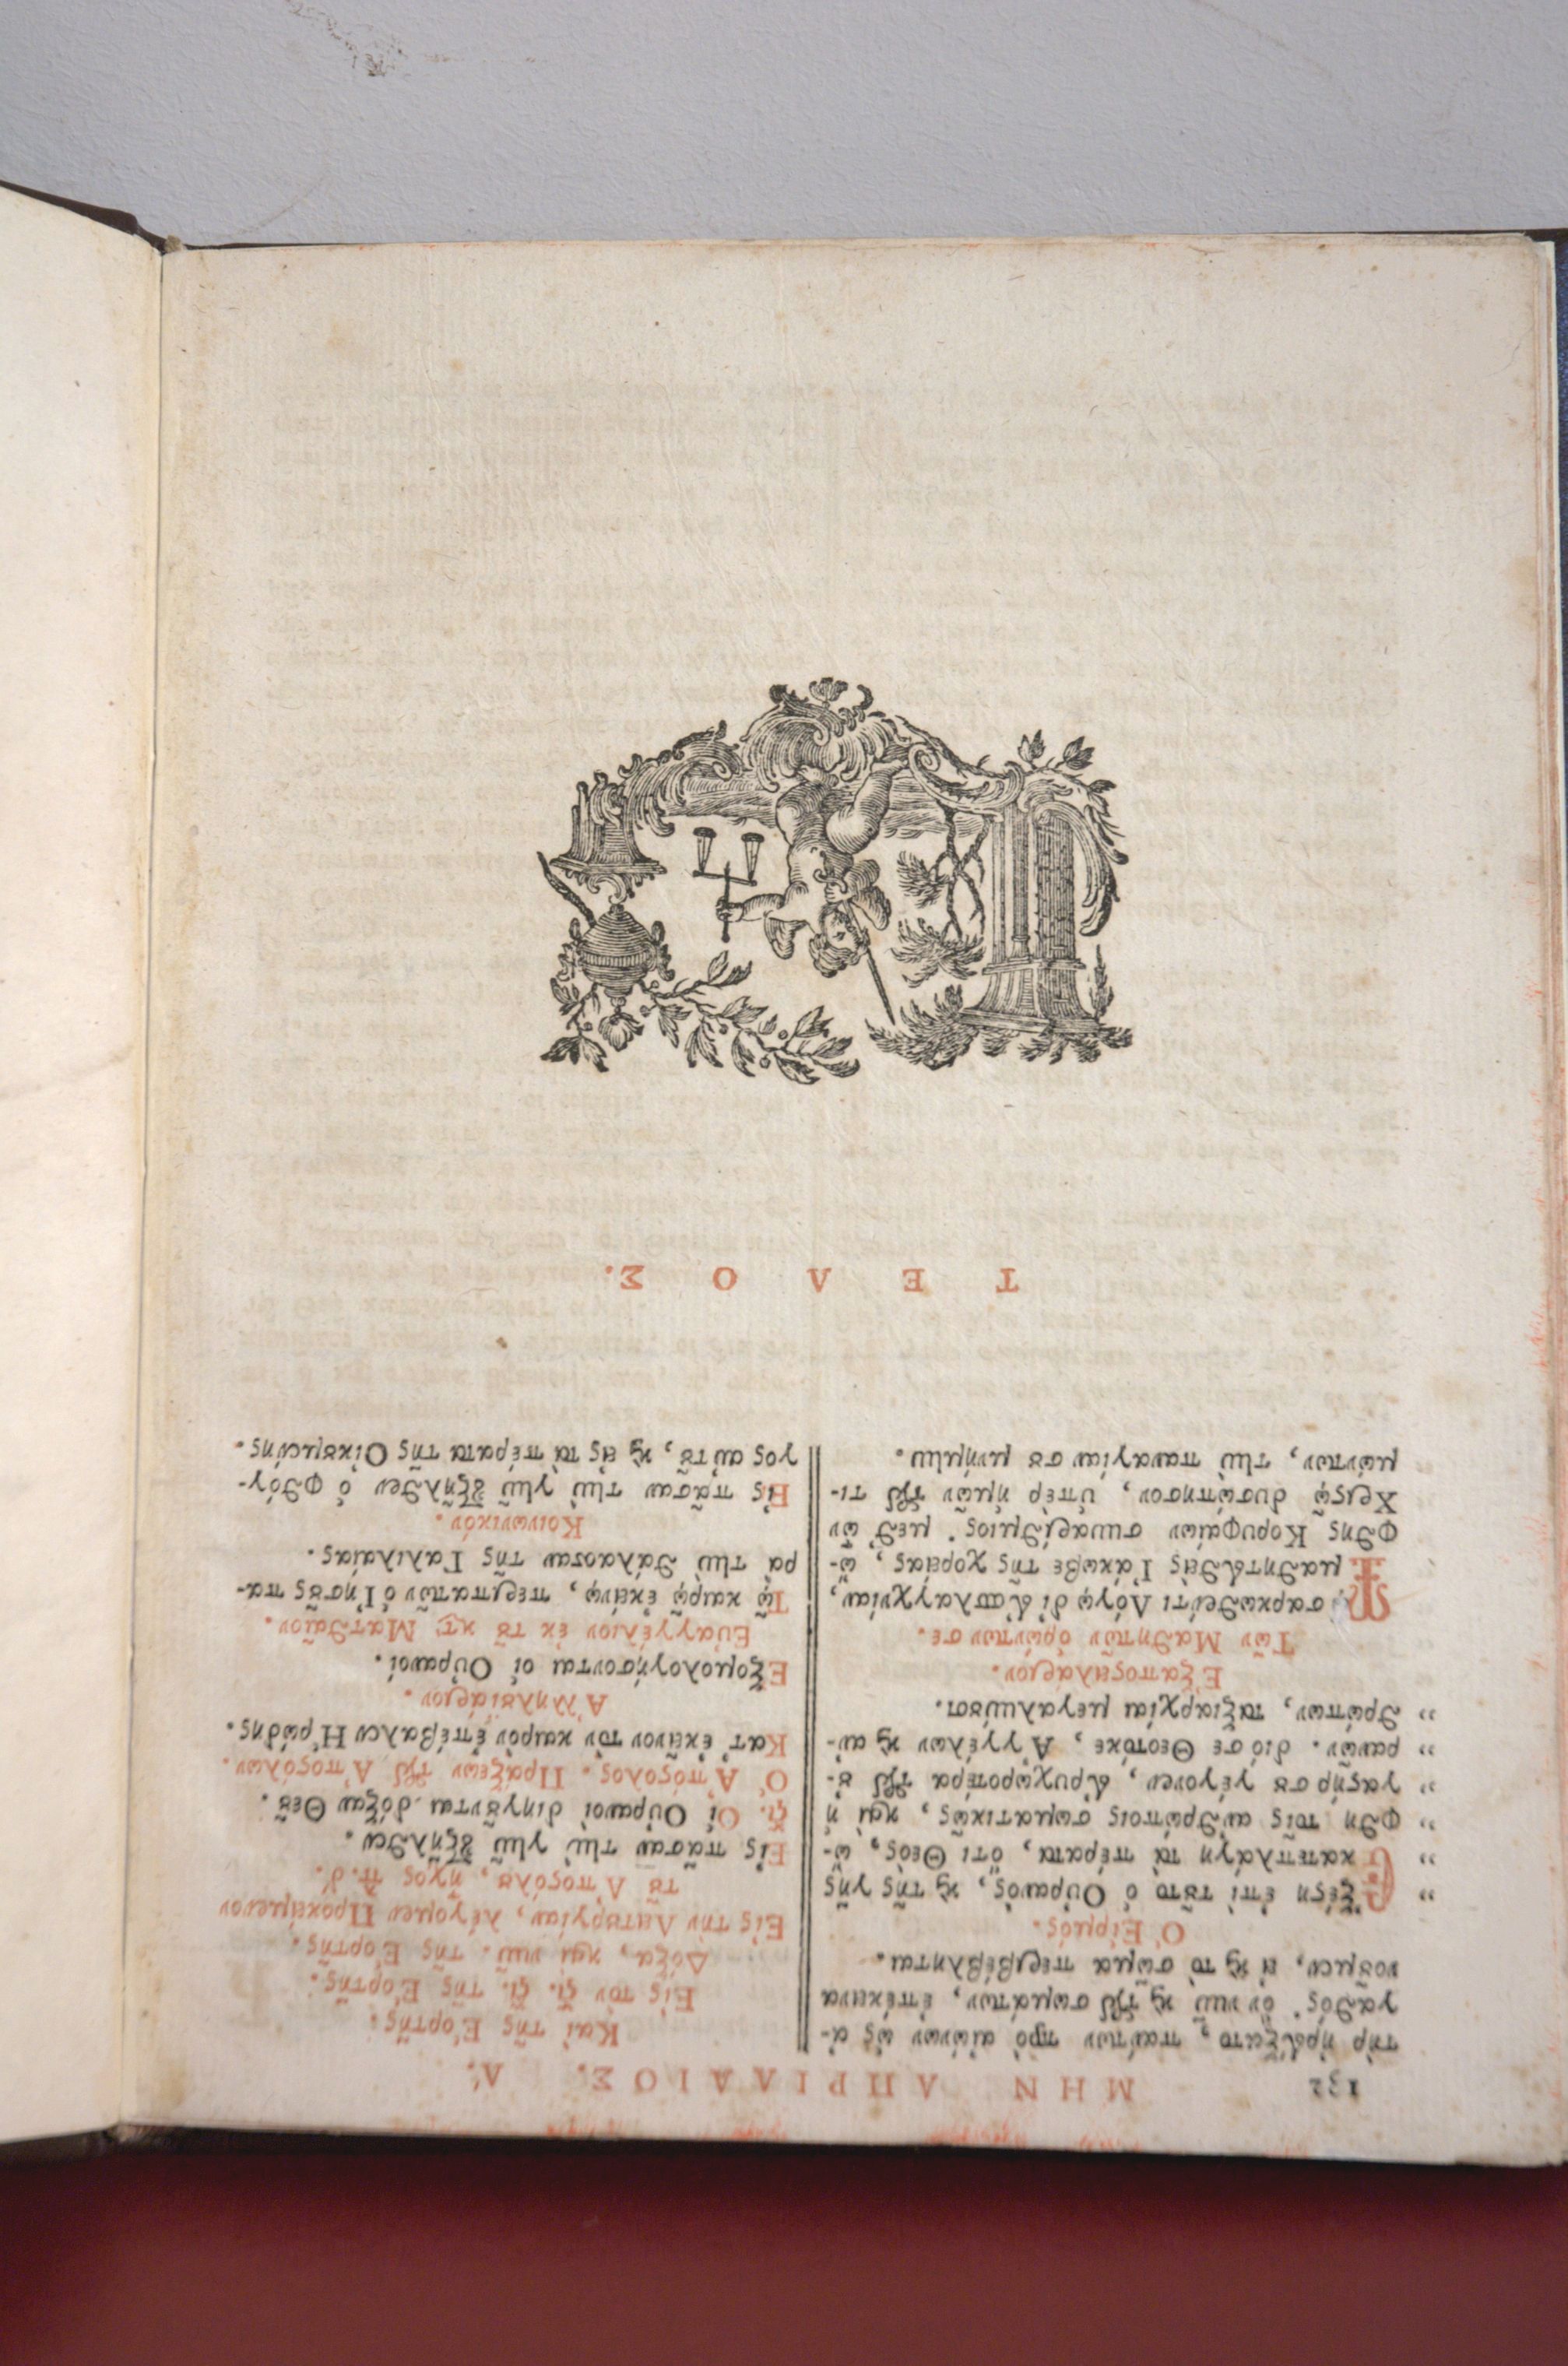 132 ΜΗΝ ΑΠΡΙΛΛΙΟΣ. Λ'.
τὴρ ἠρεύξατο, πάντων πρὸ αἰώνων ὡς ἀ-
γαθός· ὃν νῦν ϗ τῶν σωμάτων, ἐπέκεινα
νοοῦμεν, εἰ ϗ τὸ σῶμα περιβέβληται.
Ὁ Εἱρμός.
„ Ἐξέστη ἐπὶ τούτῳ ὁ Οὐρανός, ϗ τῆς γῆς
„ κατεπλάγη τὰ πέρατα, ὅτι Θεός, ὤ-
„ φθη τοῖς ἀνθρώποις σωματικῶς, καὶ ἡ
„ γαστήρ σου γέγονεν, εὐρυχωροτέρα τῶν οὐ-
„ ρανῶν. διό σε Θεοτόκε, Ἀγγέλων ϗ ἀν-
„ θρώπων, ταξιαρχίαι μεγαλύνουσι.
Ἐξαποστειλάριον.
Τῶν Μαθητῶν ὁρώντων σε.
Τῷ σαρκωθέντι Λόγῳ δι' εὐσπλαγχνίαν,
μαθητευθεὶς Ἰάκωβε τῆς χορείας, ὤ-
φθης Κορυφαίων συναρίθμιος· μεθ' ὧν
Χριστῷ δυσώπησον, ὑπὲρ ἡμῶν τῶν τι-
μώντων, τὴν παναγίαν σου μνήμην.
Καὶ τῆς Ἑορτῆς.
Εἰς τὸν στι. στι. τῆς Ἑορτῆς.
Δόξα, καὶ νῦν. τῆς Ἑορτῆς.
Εἰς τὴν Λειτουργίαν, λέγομεν Προκείμενον
τοῦ Ἀποστόλου, ἦχος πλ. δ'.
Εἰς πᾶσαν τὴν γῆν ἐξῆλθεν.
στι. Οἱ Οὐρανοὶ διηγοῦνται δόξαν Θεοῦ.
Ὁ Ἀπόστολος. Πράξεων τῶν Ἀποστόλων.
Κατ' ἐκεῖνον τὸν καιρὸν ἐπέβαλεν Ἡρώδης.
Ἀλληλουϊάριον.
Ἐξομολογήσονται οἱ Οὐρανοί.
Εὐαγγέλιον ἐκ τοῦ κτ. Ματθαῖον.
Τῷ καιρῷ ἐκείνῳ, περιπατῶν ὁ Ἰησοῦς πα-
ρὰ τὴν θάλασσαν τῆς Γαλιλαίας.
Κοινωνικόν.
Εἰς πᾶσαν τὴν γῆν ἐξῆλθεν ὁ Φθόγ-
γος αὐτοῦ, ϗ εἰς τὰ πέρατα τῆς Οἰκουμένης.
ΤΕΛΟΣ.